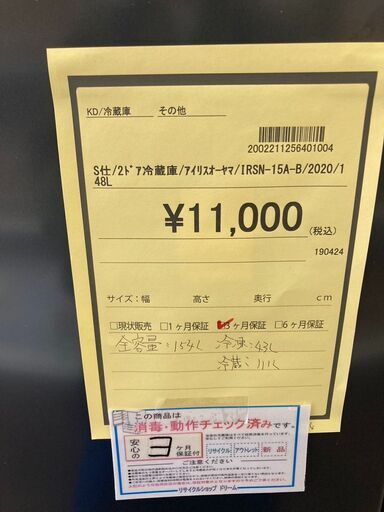 KD/冷蔵庫 その他
2002211256401004
S仕/2ﾄﾞｱ冷蔵庫/ｱｲﾘｽｵｰﾔﾏ/IRSN-15A-B/2020/1
48L
¥11,000 (税込)
190424
サイズ:幅 高さ 奥行 cm
□現状販売 □1ヶ月保証 ☑3ヶ月保証 □6ヶ月保証
全容量:154L 冷凍:43L
冷蔵:111L
この商品は
消毒・動作チェック済みです。
安心の 3 ヶ月保証付
リサイクル アウトレット 新品
ご注意ください
リサイクルショップ ドリーム